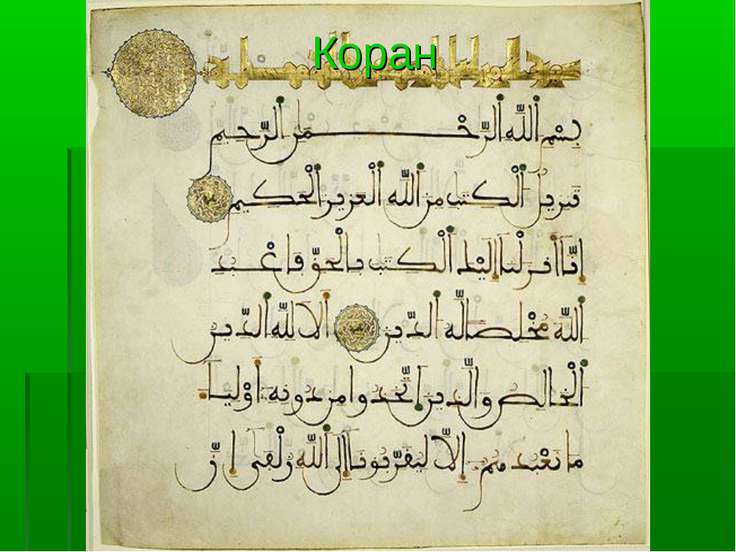 Коран
بِسْمِ اللَّهِ الرَّحْمَنِ الرَّحِيمِ
تنزيلُ الْكتٰب من اللَّه الْعزيز الْحكيم
إنّا أنزلْنا إليْك الْكتٰب بالْحقّ فاعْبد
اللَّه مُخْلصا لّه الدّين ألا للَّه الدّين
الْخالصُ والّذين اتّخذوا من دونه أوْلياء
ما نعْبدهم إلّا ليقرّبونا إلى اللَّه زلْفى إنّ